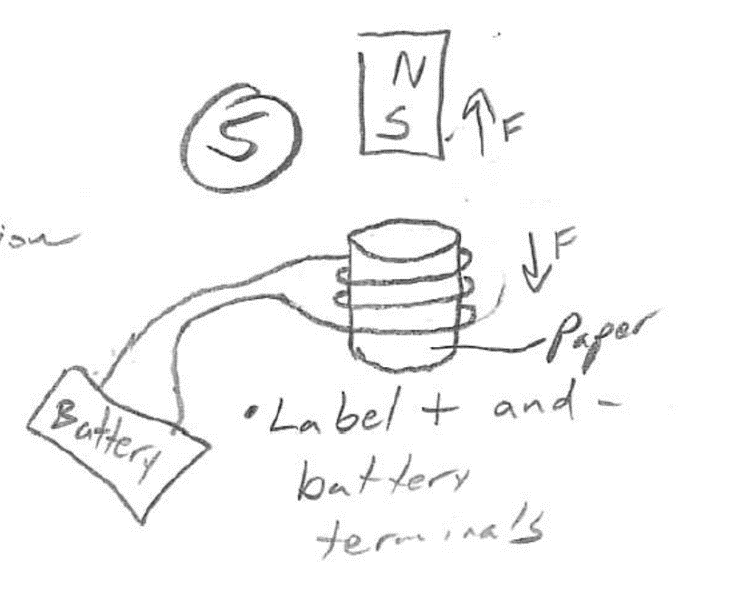 N
S
5
F
F
Paper
Battery
• Label + and -
battery
terminals